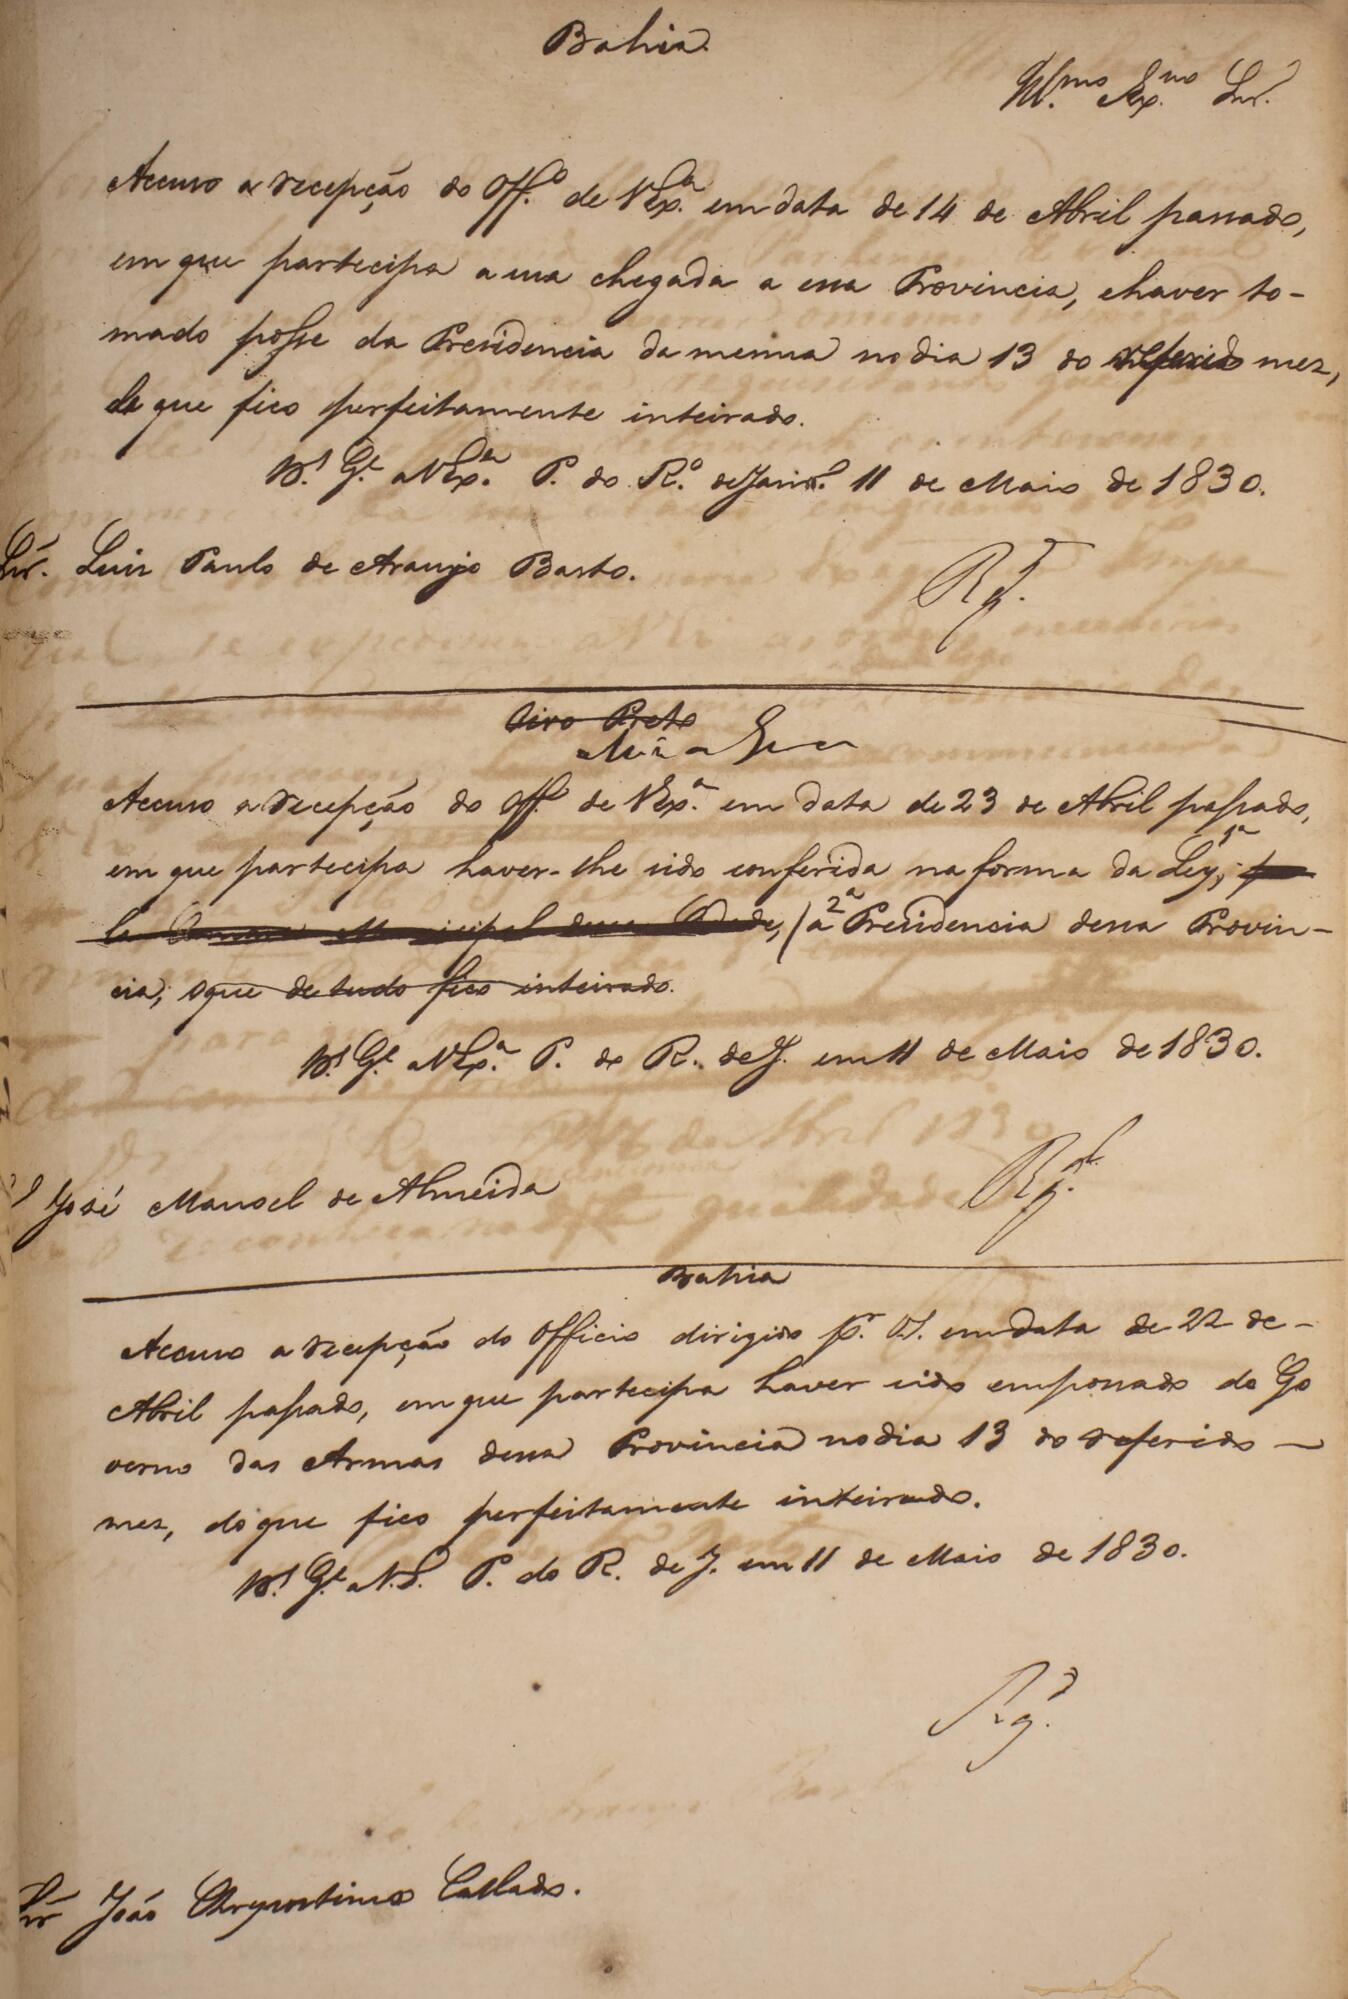 Bahia.
Ill.mo Ex.mo Snr.
Accuso a recepção do Off.o de V Ex.a em data de 14 de Abril passado,
em que partecipa a sua chegada a essa Provincia, e haver to-
mado posse da Presidencia da mesma no dia 13 do referido mez,
de que fico perfeitamente inteirado.
D.s G.e a V Ex.a P. do R.o de Janr.o 11 de Maio de 1830.
Snr. Luis Paulo de Araujo Basto.
Ouro Preto
Minas Geraes
Accuso a recepção do Off. de V Ex.a em data de 23 de Abril passado,
em que partecipa haver-lhe sido conferida na forma da Ley, 1a pe
la Camara Municipal dessa Cidade, / a 2a Presidencia dessa Provin-
cia; o que de tudo fico inteirado.
D.s G.e a V Ex.a P. do R. de J. em 11 de Maio de 1830.
José Manoel de Almeida
Bahia
Accuso a recepção do Officio dirigido p.r V.S. em data de 22 de-
Abril passado, em que partecipa haver sido empossado do Go
verno das Armas dessa Provincia no dia 13 do referido -
mez, do que fico perfeitamente inteirado.
D.s G.e a V.S. P. do R. de J. em 11 de Maio de 1830.
Snr João Chrysostimo Callado.